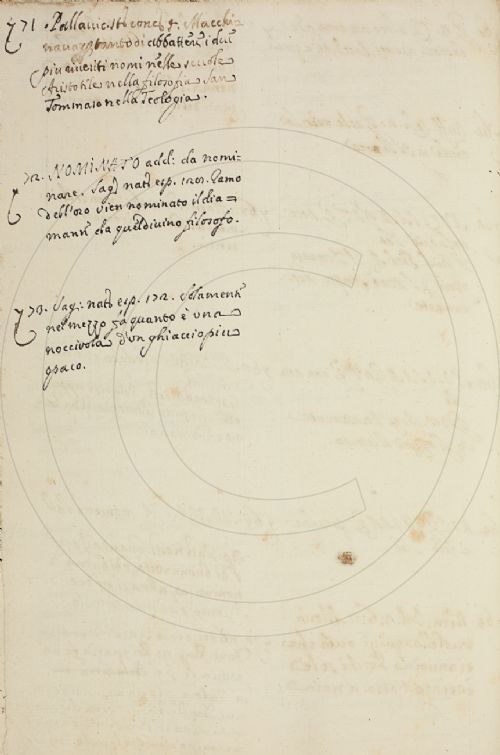 71. Pallavic. st. conc. Macchi-
navan tanto di abbattere i due
più riveriti nomi nelle scuole
Aristotile nella filosofia San
Tommaso nella Teologia.
72. NOMINATO add: da nomi-
nare. Sag. nat. esp. 120. Ramo
dell'oro vien nominato il dia=
mante da quel divino filosofo.
73. Sag: nat. esp. 172. Solamente
nel mezzo quanto è una
nocciuola d'un ghiaccio più
opaco.